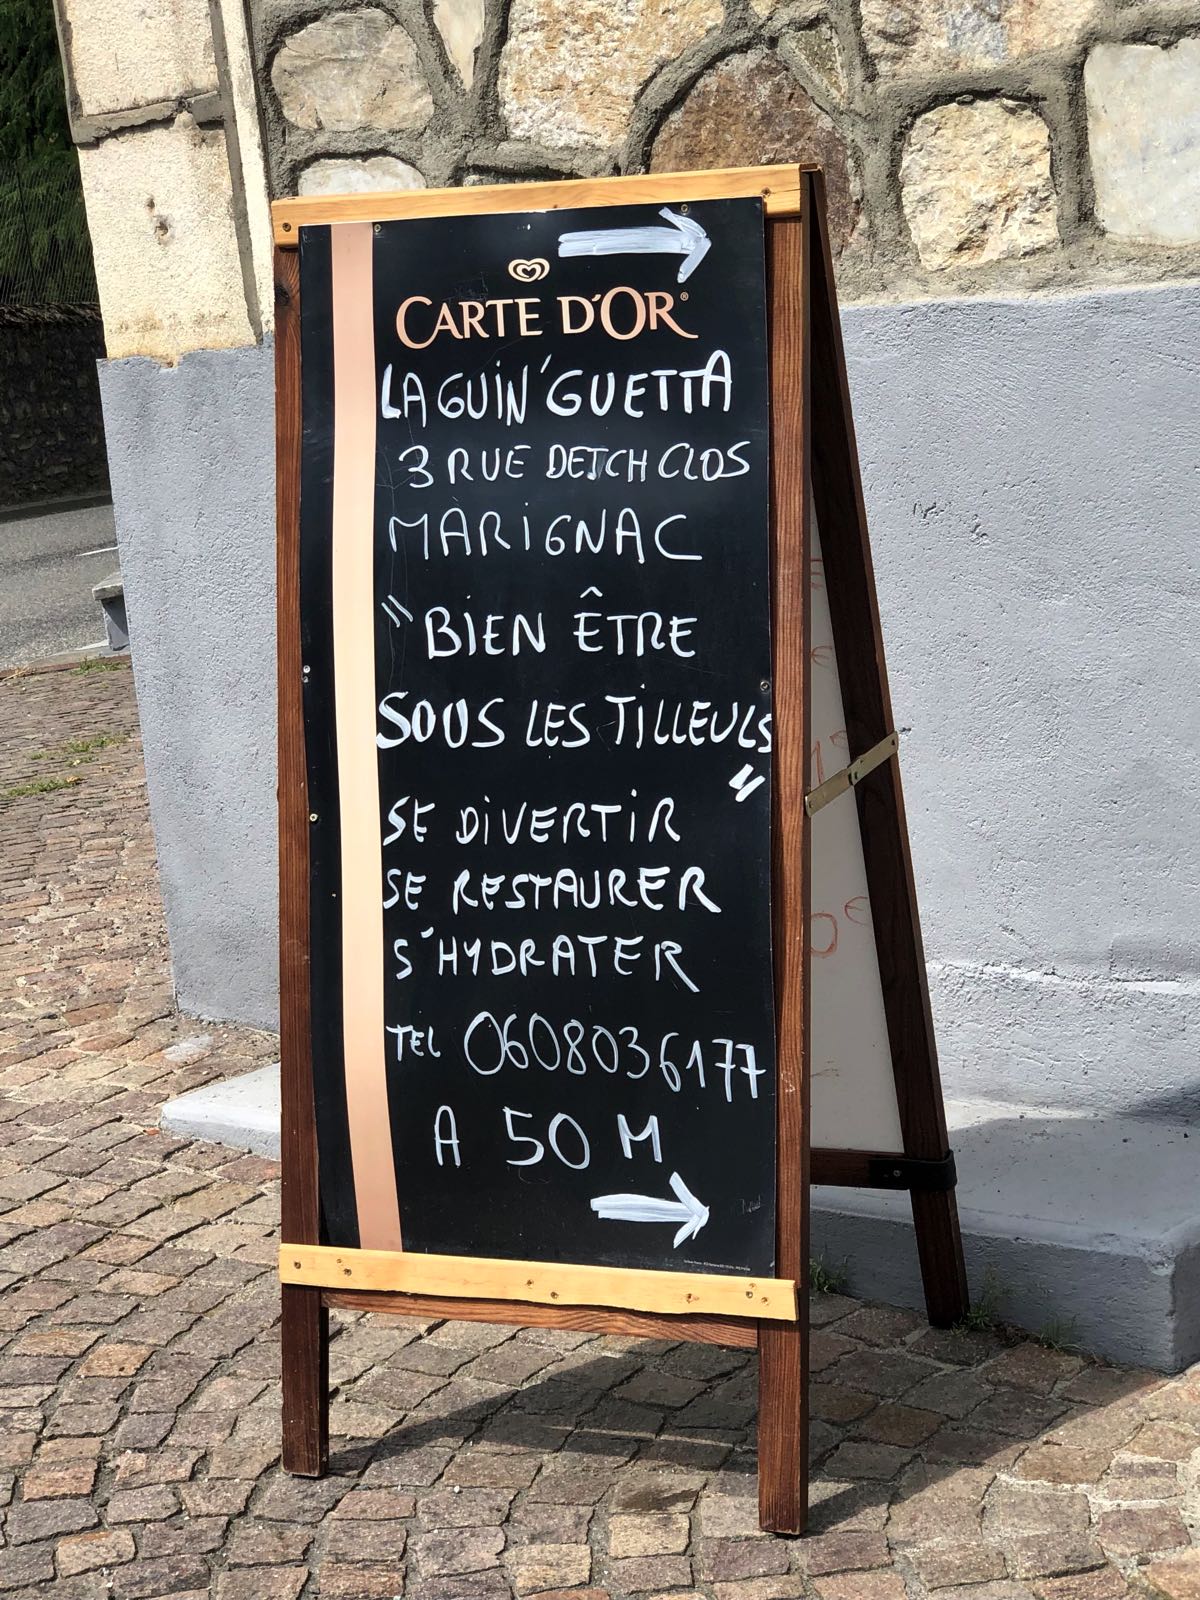 CARTE D'OR®
LA GUIN'GUETTA
3 RUE DETCH CLOS
MARIGNAC
"BIEN ÊTRE
SOUS LES TILLEULS
"
SE DIVERTIR
SE RESTAURER
S'HYDRATER
TEL 0608036177
A 50 M